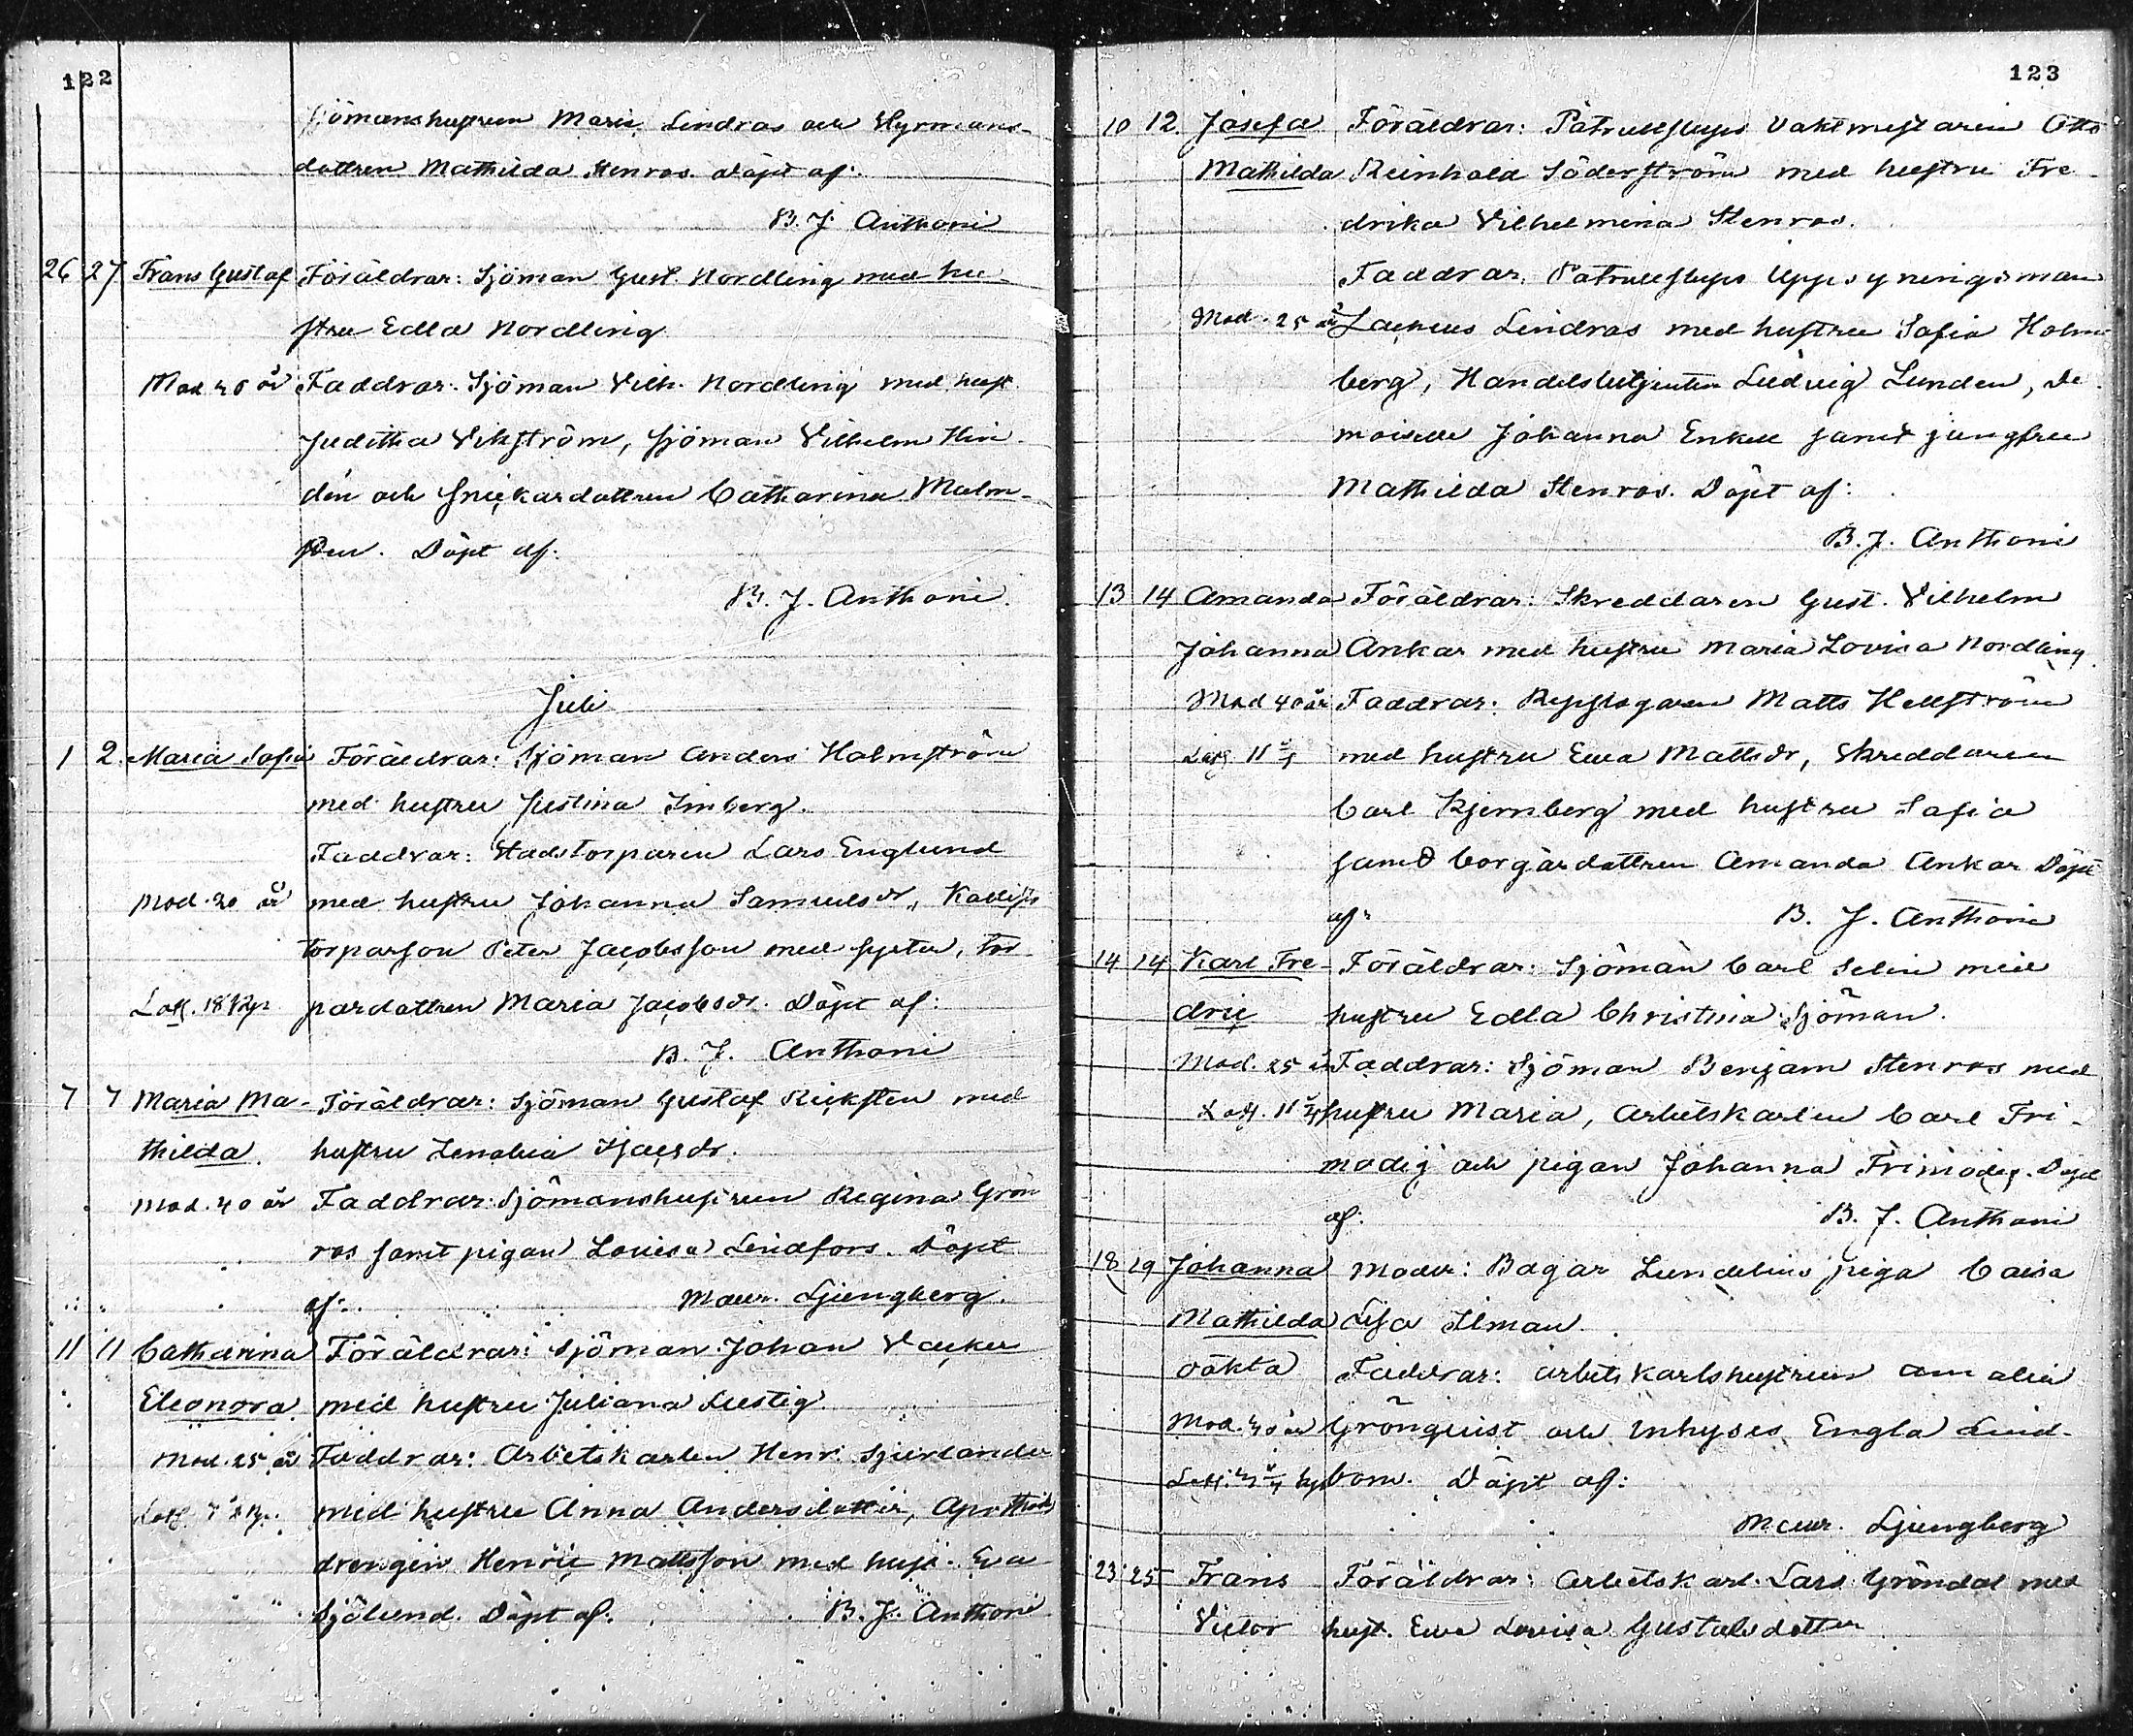 122
sjömanshustrun Maria Lindros och Styrmans-
dottren Mathilda Stenros. Döpt af:
B. J. Anthoni
26 27 Frans Gustaf Föräldrar: Sjöman Gust. Nordling med hu-
stru Edla Nordling
Mod. år Faddrar: Sjöman Vilh. Nordling med hust.
Juditha Vikström, sjöman Vilhelm
och snickardottren Catharina Malm-
sten. Döpt af:
B. J. Anthoni.
Juli
1 2. Maria Sofia Föräldrar: Sjöman Anders Holmström
med hustru Justina Imberg.
Faddrar: Stadstorparen Lars Englund
Mod. år med hustru Johanna Samuelsdr,
torparson Peter Jacobsson med syster, tor-
Latg. 18 pardottren Maria Jacobsdr. Döpt af:
B. J. Anthoni
7 7 Maria Ma- Föräldrar: Sjöman Gustaf Ricksten med
thilda. hustru Isacsdr.
Mod. 40 år Faddrar: Sjömanshustrun Regina Grön-
ros samt pigan Lovisa Lindfors. Döpt
af: Maur. Ljungberg.
11 11 Catharina Föräldrar: Sjöman Johan Vacker
Eleonora med hustru Juliana Lustig.
Mod. 25 år Faddrar: Arbetskarlen Henr.
med hustru Anna Andersdotter, Apotheks
drengen Henric Mattsson med hust. Eva
Sjölund. Döpt af: B. J. Anthoni
123
10 12. Josefa Föräldrar: Patrullslups Vaktmestaren Otto
Mathilda Reinhold Söderström med hustru Fre-
drika Vilhelmina Stenros.
Faddrar: Patrullslups Uppsyningsman
Mod. 25 år Zacheus Lindros med hustru Sofia Holm-
berg, Handelsbetjenten Ludvig Lunden, De-
moiselle Johanna Enkell samt jungfru
Mathilda Stenros. Döpt af:
B. J. Anthoni
13 14 Amanda Föräldrar: Skreddaren Gust. Vilhelm
Johanna Ankar med hustru Maria Lovisa Nordling.
Mod 40 år Faddrar: Repslagaren Matts Hellström
Latg 11 med hustru Ewa Mattsdr, Skreddaren
Carl Kjernberg med hustru Sofia
samt borgardottren Amanda Ankar Döpt
af: B. J. Anthoni
14 14 Karl Fre- Föräldrar: Sjöman Carl Selin med
dric hustru Edla Christina Sjöman.
Mod. 25 år Faddrar: Sjöman Benjam Stenros med
Latg. 11 hustru Maria, Arbetskarlen Carl Fri-
modig och pigan Johanna Frimodig. Döpt
af: B. J. Anthoni
18 19 Johanna Moder: Bagar Lundelins piga Caisa
Mathilda Lisa Ilman.
oäkta Faddrar: Arbetskarlshustrun Amalia
Mod. år Grönquist och Inhyses Engla Lind-
bom. Döpt af:
Maur. Ljungberg
23 25 Frans Föräldrar: Arbetskarl. Lars Gröndal med
Victor hust. Ewa Lovisa Gustafsdotter